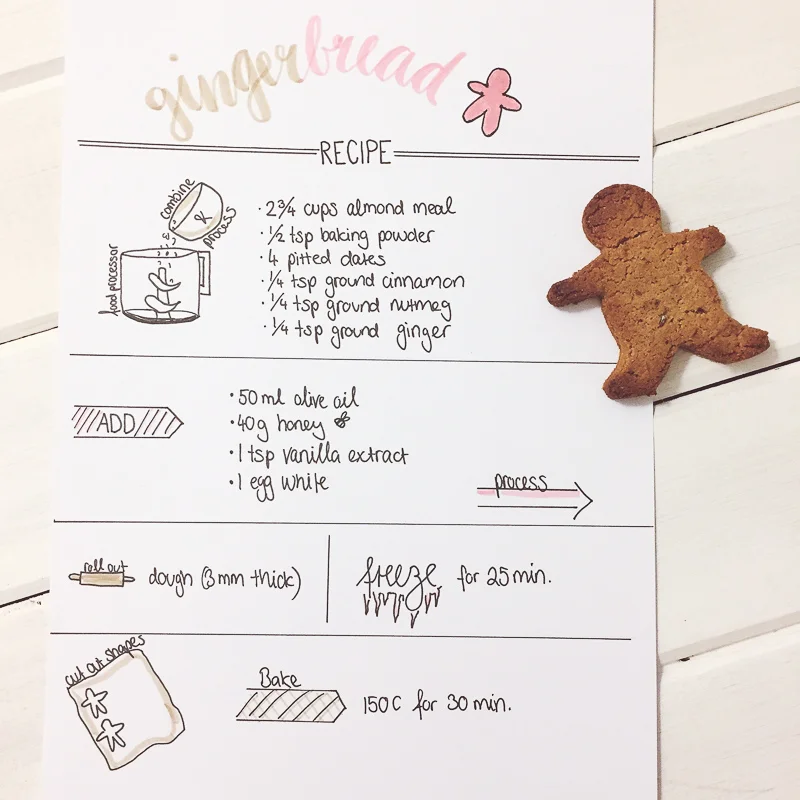 gingerbread
RECIPE
combine
& process
food processor
· 2¾ cups almond meal
· ½ tsp baking powder
· 4 pitted dates
· ¼ tsp ground cinnamon
· ¼ tsp ground nutmeg
· ¼ tsp ground ginger
ADD
· 50 ml olive oil
· 40g honey
· 1 tsp vanilla extract
· 1 egg white
process
roll out
dough (3mm thick)
freeze for 25 min.
cut out shapes
Bake
150C for 30 min.